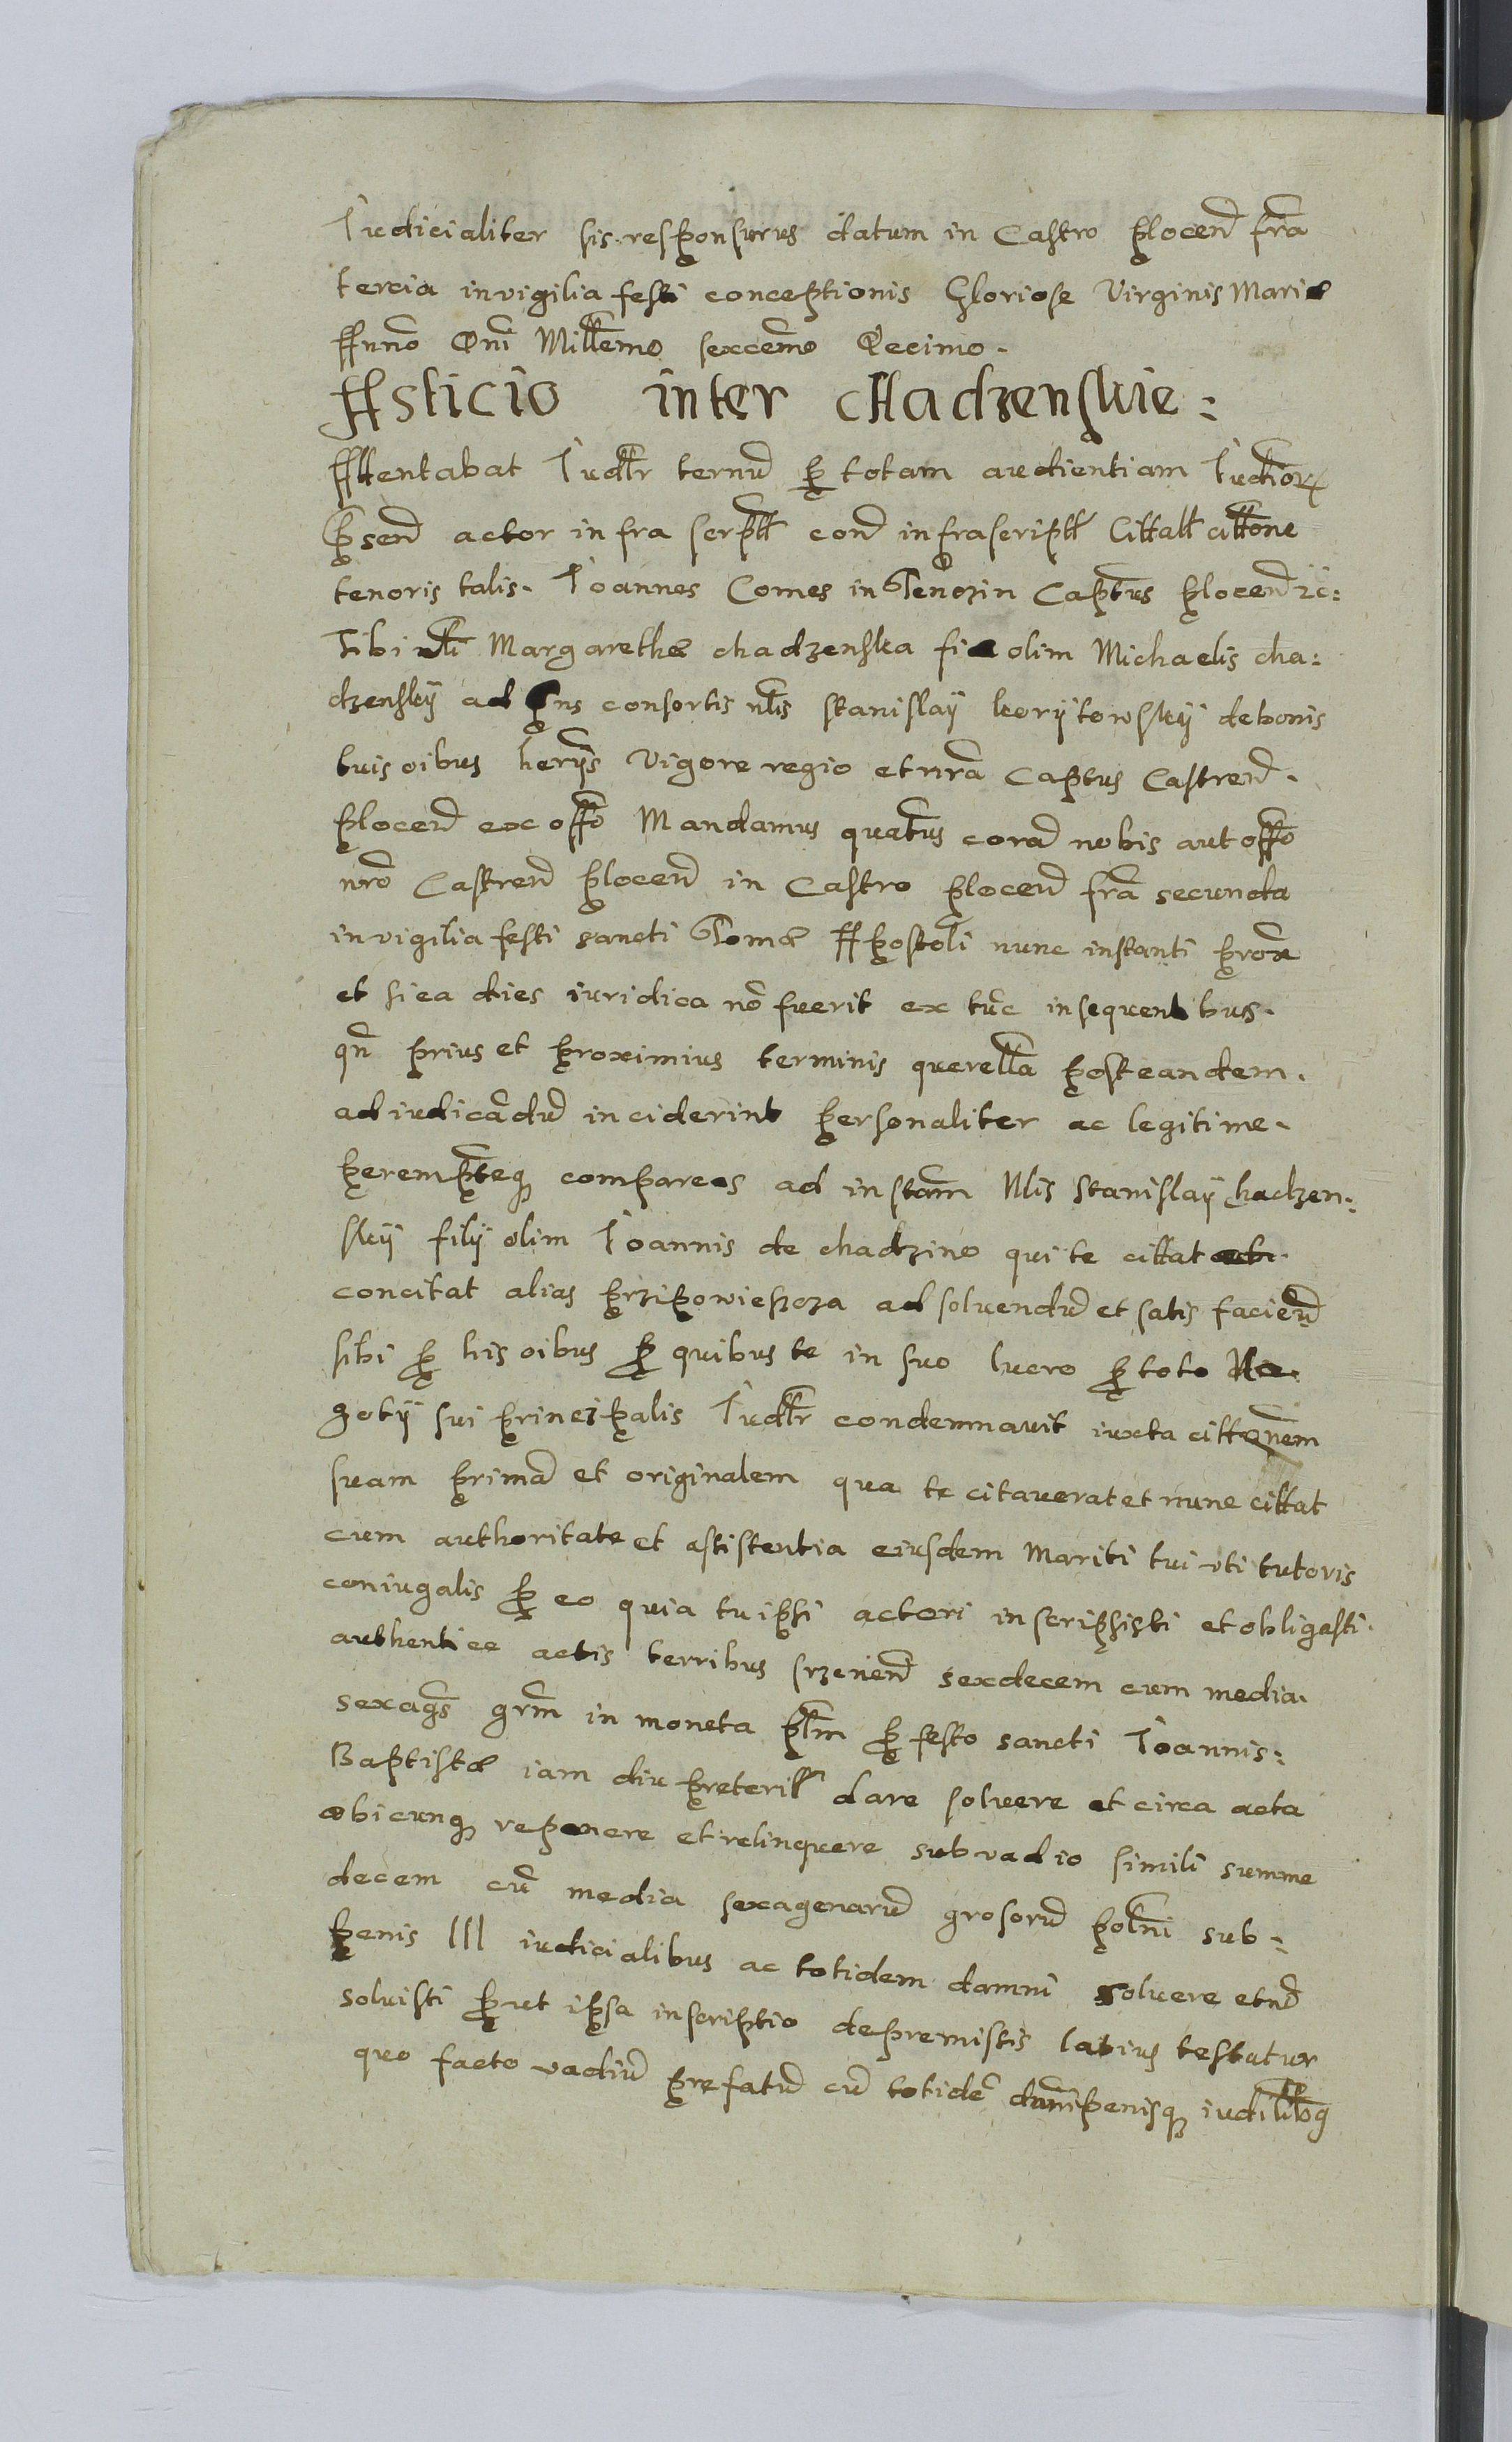 Iudicialiter sis responsurus datum in Castro plocen̄ fr̄a
tercia in vigilia festi conceptionis Gloriose Virginis Mariæ
Anno Dnī Millemo sexcemo Decimo.
Asticio inter cHadzenskie:
Attentabat Iudlr ternū p totam audientiam Iudior
Psen̄ actor infra scrptt con̄ infrascriptt Cittatt cittone
tenoris talis. Ioannes Comes in Tenczin Captus plocen̄ zc:
Tibi nli Margarethæ chadzenska fiæ olim Michaelis cha:
dzenskÿ ad pns consortis nlis Stanislaÿ korÿtowskÿ de bonis
tuis oibus herÿs Vigore regio et nra Captus Castren̄.
plocen̄ ex offo Mandamus quatus corā nobis aut offo
nro Castren̄ plocen̄ in Castro plocen̄ fra secunda
in vigilia festi sancti Tomæ Apostoli nunc instanti prox
et si ea dies iuridica nō fuerit ex tūc insequentibus.
qn̄ prius et proximius terminis querella post eandem.
adiudicādū inciderint personaliter ac legitime.
peremptęq compareas ad instam Nlis Stanislaÿ hadzen:
skÿ filÿ olim Ioannis de chadzino qui te cittat
concitat alias przipowieszcza ad solvendū et satis facien̄
sibi p his oibus p quibus te in suo lucro p toto Ne
gotÿ sui principalis Iudlr condemnavit iuxta cittonem
suam primā et originalem qua te citaverat et nunc cittat
cum authoritate et assistentia eiusdem Mariti tui uti tutoris
coniugalis p eo quia tu ipsi actori inscripsisti et obligasti.
authentice actis terribus srzenen̄ sexdecem cum media.
sexags grm in moneta plm p festo sancti Ioannis:
Baptistæ iam diu preteritt dare solvere et circa acta
ubicunq reponere et relinquere sub vadio simili summe
decem cū media sexagenarū grosorū polni sub:
penis III iudicialibus ac totidem damni solvere et nō
solvisti prut ipsa inscriptio de premissis latius testatur
quo facto vadiū prefatū cū totidē damni penisq iudilibq